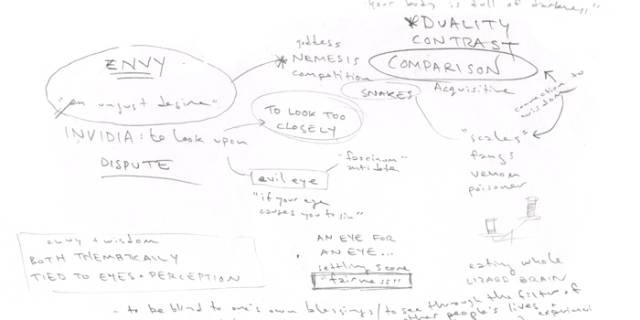 your body is full of darkness"
*DUALITY
CONTRAST
COMPARISON
Acquisitive
goddess
*NEMESIS
competition
SNAKES
connection to
wisdom
ENVY
"an unjust desire"
INVIDIA: to look upon
DISPUTE
TO LOOK TOO
CLOSELY
evil eye
"fascinum"
antidote
"if your eye
causes you to sin"
"scales"
fangs
venom
poisoner
envy + wisdom
BOTH THEMATICALLY
TIED TO EYES + PERCEPTION
AN EYE FOR
AN EYE...
settling score
"fairness"
eating whole
LIZARD BRAIN
- to be blind to one's own blessings/to see through the filter of
other people's lives +